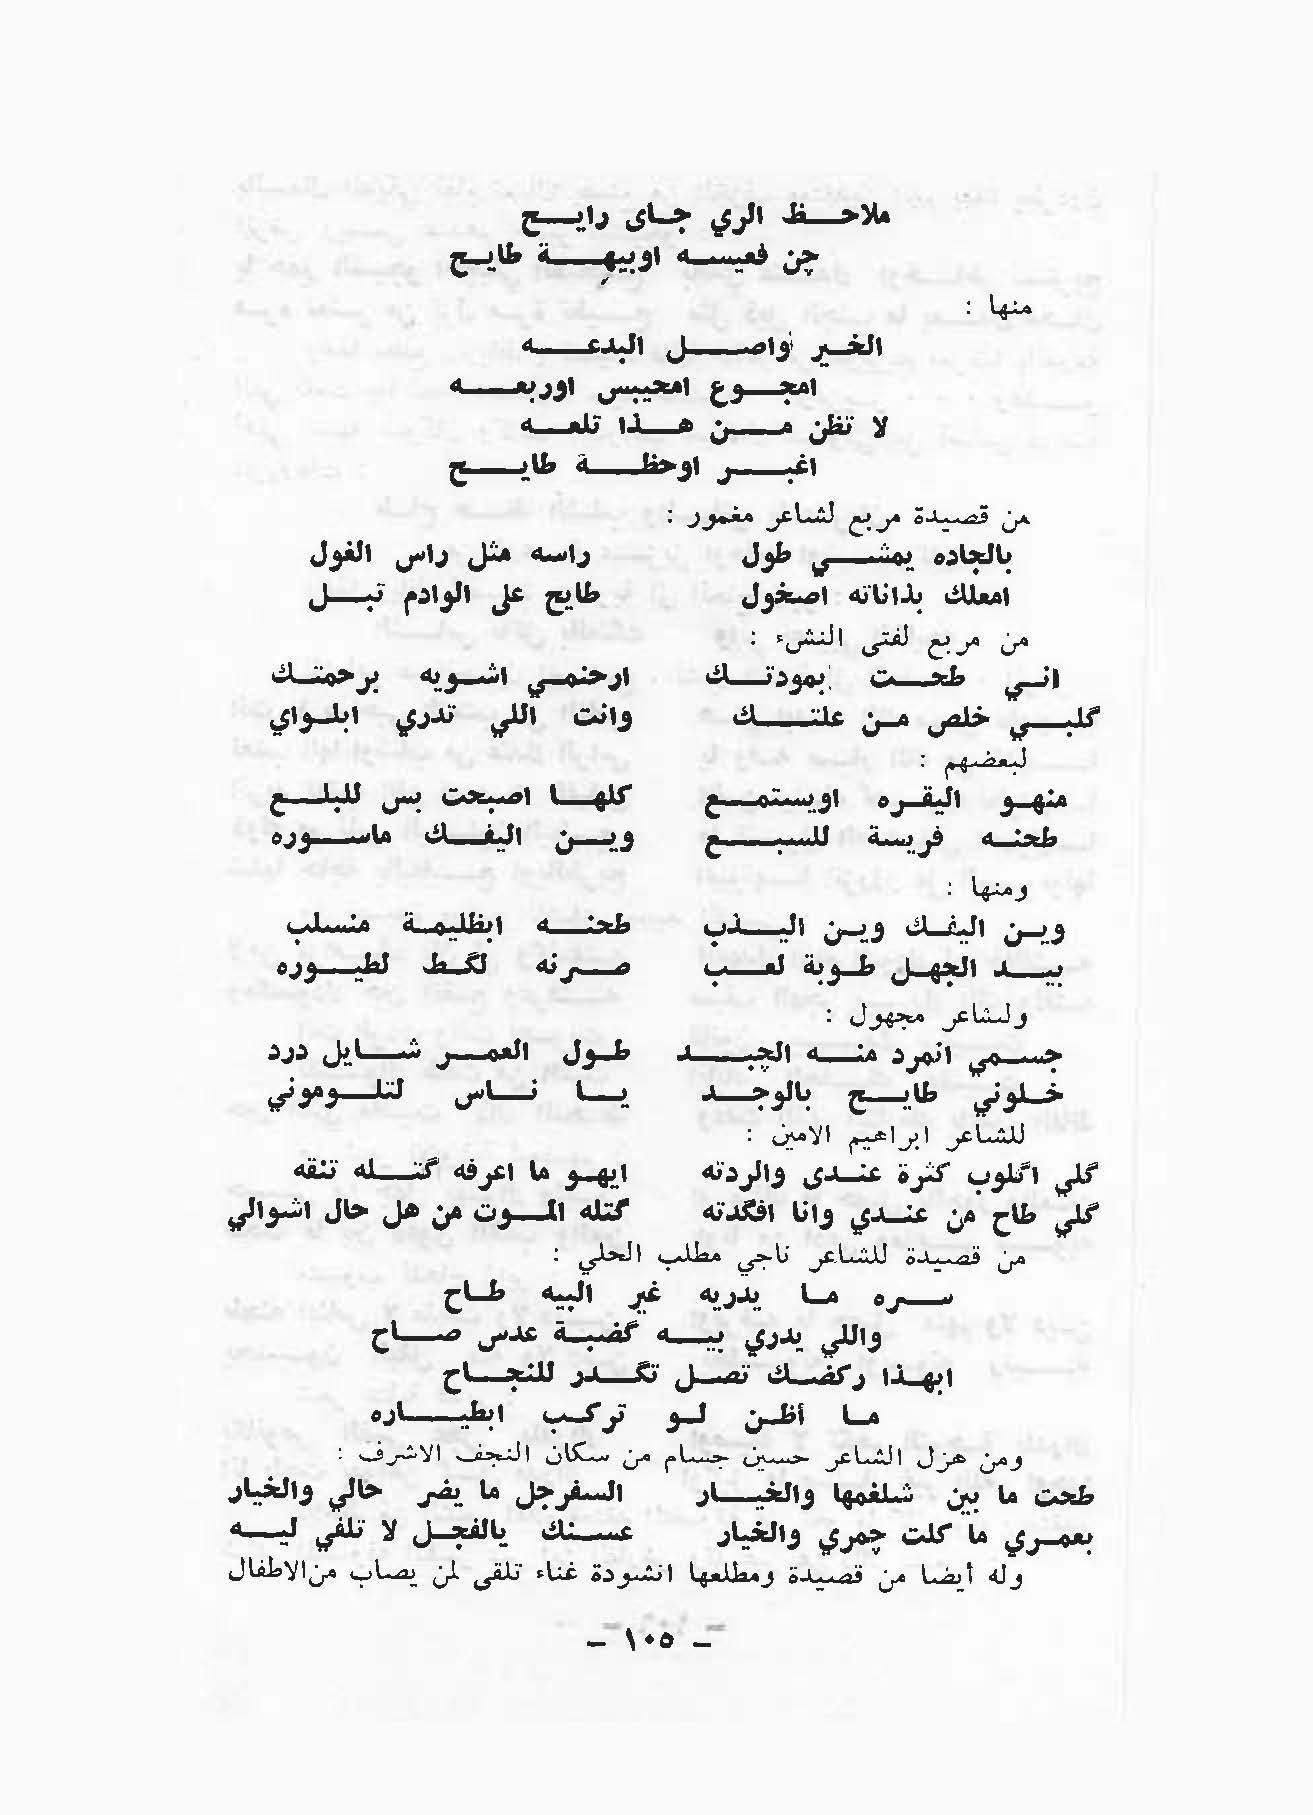 ملاحظ الري جاى رايح
چن فعيسه اوبيهة طايح
منها :
الخير اواصل البدعه
امجوع امحيبس اوربعه
لا تظن من هذا تلعه
اغبر اوحظة طايح
من قصيدة مربع لشاعر مغمور :
بالجاده يمشي طول راسه مثل راس الغول
امعلك بذاناته اصخول طايح على الوادم تبل
من مربع لفتى النشء :
اني طحت ابمودتك ارحنمي اشويه برحمتك
گلبي خلص من علتك وانت اللي تدري ابلواي
لبعضهم :
منهو اليقره اويستمع كلها اصبحت بس للبلع
طحنه فريسة للسبع وين اليفك ماسوره
ومنها :
وين اليفك وين اليذب طحنه ابظليمة منسلب
بيد الجهل طوبة لعب صرنه لگط لطيوره
ولشاعر مجهول :
جسمي انمرد منه الچبد طول العمر شايل درد
خلوني طايح بالوجد يا ناس لتلوموني
للشاعر ابراهيم الامين :
گلي اگلوب كثرة عندى والردته ايهو ما اعرفه گتله تنقه
گلي طاح من عندي وانا افگدته گتله الموت من هل حال اشوالي
من قصيدة للشاعر ناجي مطلب الحلي :
سره ما يدريه غير البيه طاح
واللي يدري بيه گضبة عدس صاح
ابهذا ركضك تصل تگدر للنجاح
ما أظن لو تركب ابطياره
ومن هزل الشاعر حسين جسام من سكان النجف الاشرف :
طحت ما بين شلغمها والخيار السفرجل ما يضر حالي والخيار
بعمري ما كلت چمري والخيار عسنك يالفجل لا تلفي ليه
وله أيضا من قصيدة ومطلعها انشودة غناء تلقى لمن يصاب من الاطفال
– ١٠٥ –